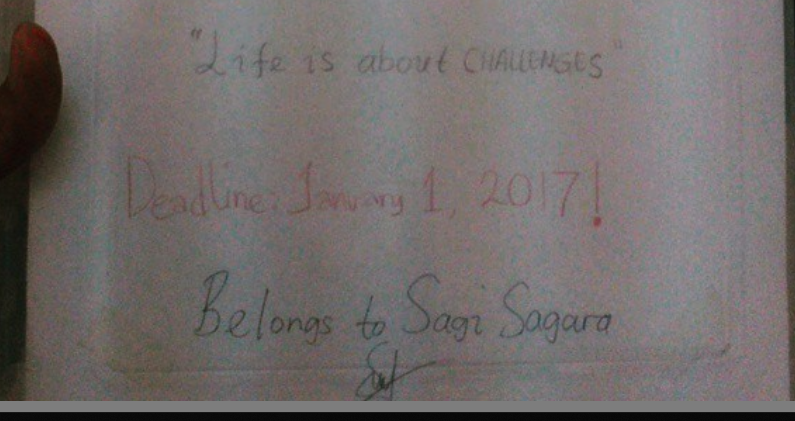 "Life is about CHALLENGES"
Deadline: January 1, 2017!
Belongs to Sagi Sagara